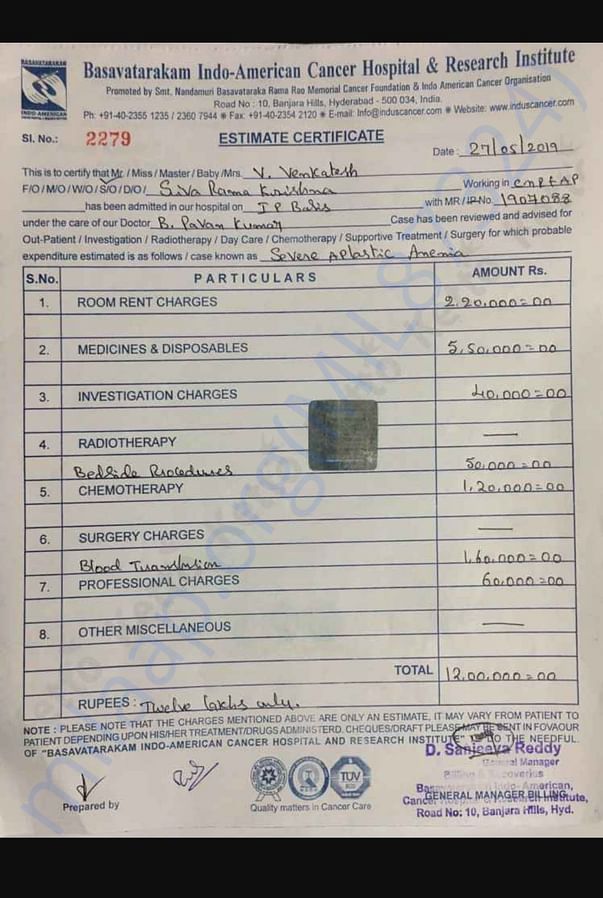 BASAVATARAKAM
INDO-AMERICAN
Basavatarakam Indo-American Cancer Hospital & Research Institute
Promoted by Smt. Nandamuri Basavataraka Rama Rao Memorial Cancer Foundation & Indo American Cancer Organisation
Road No : 10, Banjara Hills, Hyderabad - 500 034, India.
Ph: +91-40-2355 1235 / 2360 7944 ✱ Fax: +91-40-2354 2120 ✱ E-mail: Info@induscancer.com ✱ Website: www.induscancer.com
Sl. No.: 2279
ESTIMATE CERTIFICATE
Date : 27/05/2019
This is to certify that Mr. / Miss / Master / Baby /Mrs. V. Venkatesh
F/O / M/O / W/O / S/O / D/O/ Siva Rama Krishna Working in
has been admitted in our hospital on I P Basis with MR / IP No. 1907088
under the care of our Doctor B. Pavan Kumar Case has been reviewed and advised for
Out-Patient / Investigation / Radiotherapy / Day Care / Chemotherapy / Supportive Treatment / Surgery for which probable
expenditure estimated is as follows / case known as Severe Aplastic Anemia
S.No. PARTICULARS AMOUNT Rs.
1. ROOM RENT CHARGES 2,20,000=00
2. MEDICINES & DISPOSABLES 5,50,000=00
3. INVESTIGATION CHARGES 40,000=00
4. RADIOTHERAPY —
Bedside Procedures 50,000=00
5. CHEMOTHERAPY 1,20,000=00
6. SURGERY CHARGES —
Blood Transfusion 1,60,000=00
7. PROFESSIONAL CHARGES 60,000=00
8. OTHER MISCELLANEOUS —
TOTAL 12,00,000=00
RUPEES : Twelve lakhs only.
NOTE : PLEASE NOTE THAT THE CHARGES MENTIONED ABOVE ARE ONLY AN ESTIMATE, IT MAY VARY FROM PATIENT TO
PATIENT DEPENDING UPON HIS/HER TREATMENT/DRUGS ADMINISTERD. CHEQUES/DRAFT PLEASE MAY BE SENT IN FOVAOUR
OF "BASAVATARAKAM INDO-AMERICAN CANCER HOSPITAL AND RESEARCH INSTITUTE" TO THE NEEDFUL.
D. Sanjeeva Reddy
General Manager
Billing & Recoveries
Basavatarakam Indo-American,
GENERAL MANAGER BILLING
Cancer Hospital & Research Institute,
Road No: 10, Banjara Hills, Hyd.
Prepared by
TUV
Quality matters in Cancer Care